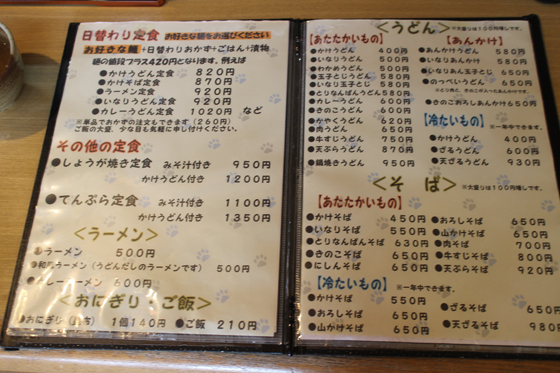 日替わり定食 お好きな麺をお選びください
お好きな麺+日替わりおかず+ごはん+漬物
麺の値段プラス420円となります。例えば
●かけうどん定食 820円
●かけそば定食 870円
●ラーメン定食 920円
●いなりうどん定食 920円
●カレーうどん定食 1020円 など
※単品でおかずの注文もできます(260円)
ご飯の大盛、少な目も気軽に申し付けください。
その他の定食
●しょうが焼き定食 みそ汁付き 950円
かけうどん付き 1200円
●てんぷら定食 みそ汁付き 1100円
かけうどん付き 1350円
<ラーメン>
ラーメン 500円
ラーメン(うどんだしのラーメンです) 500円
カレーラーメン 600円
<おにぎり・ご飯>
●おにぎり 1個140円 ●ご飯 210円
<うどん> ※大盛りは100円増しです。
【あたたかいもの】
●かけうどん 400円
●いなりうどん 500円
●わかめうどん 500円
●玉子とじうどん 580円
●いなり玉子とじ 580円
●とりなんばんうどん 580円
●カレーうどん 600円
●きのこうどん 600円
●かやくうどん 620円
●肉うどん 650円
●牛すじうどん 750円
●天ぷらうどん 870円
●鍋焼きうどん 950円
【あんかけ】
●あんかけうどん 580円
●いなりあんうどん 580円
●いなりあん玉子とじ 650円
●のっぺいうどん 650円
●きのこおろしあんかけ 650円
【冷たいもの】 ※一年中できます。
●かけうどん 400円
●ざるうどん 600円
●天ざるうどん 930円
<そば> ※大盛りは100円増しです。
【あたたかいもの】
●かけそば 450円
●いなりそば 550円
●とりなんばんそば 630円
●きのこそば 650円
●にしんそば 650円
●おろしそば 650円
●山かけそば 650円
●肉そば 700円
●牛すじそば 800円
●天ぷらそば 920円
【冷たいもの】 ※一年中できます。
●かけそば 550円
●おろしそば 650円
●山かけそば 650円
●ざるそば 650円
●天ざるそば 980円